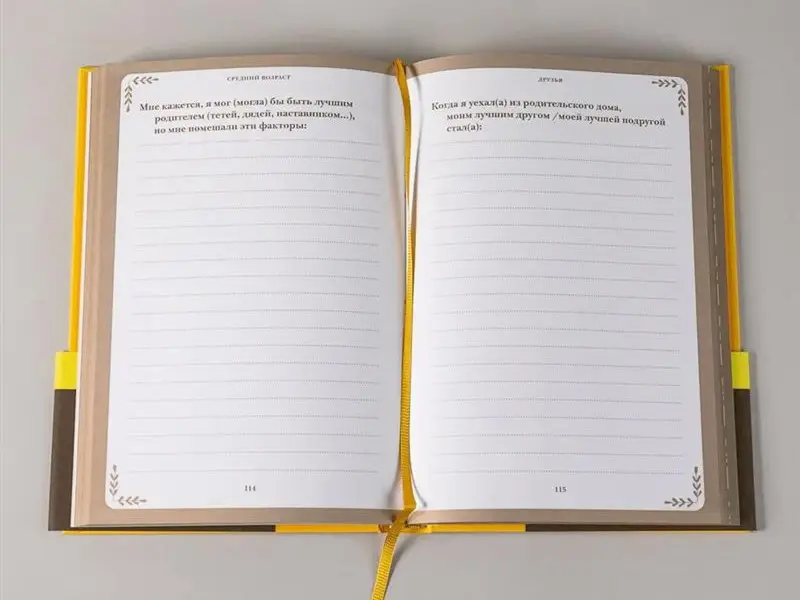 СРЕДНИЙ ВОЗРАСТ
Мне кажется, я мог (могла) бы быть лучшим
родителем (тетей, дядей, наставником...),
но мне помешали эти факторы:
114
ДРУЗЬЯ
Когда я уехал(а) из родительского дома,
моим лучшим другом /моей лучшей подругой
стал(а):
115